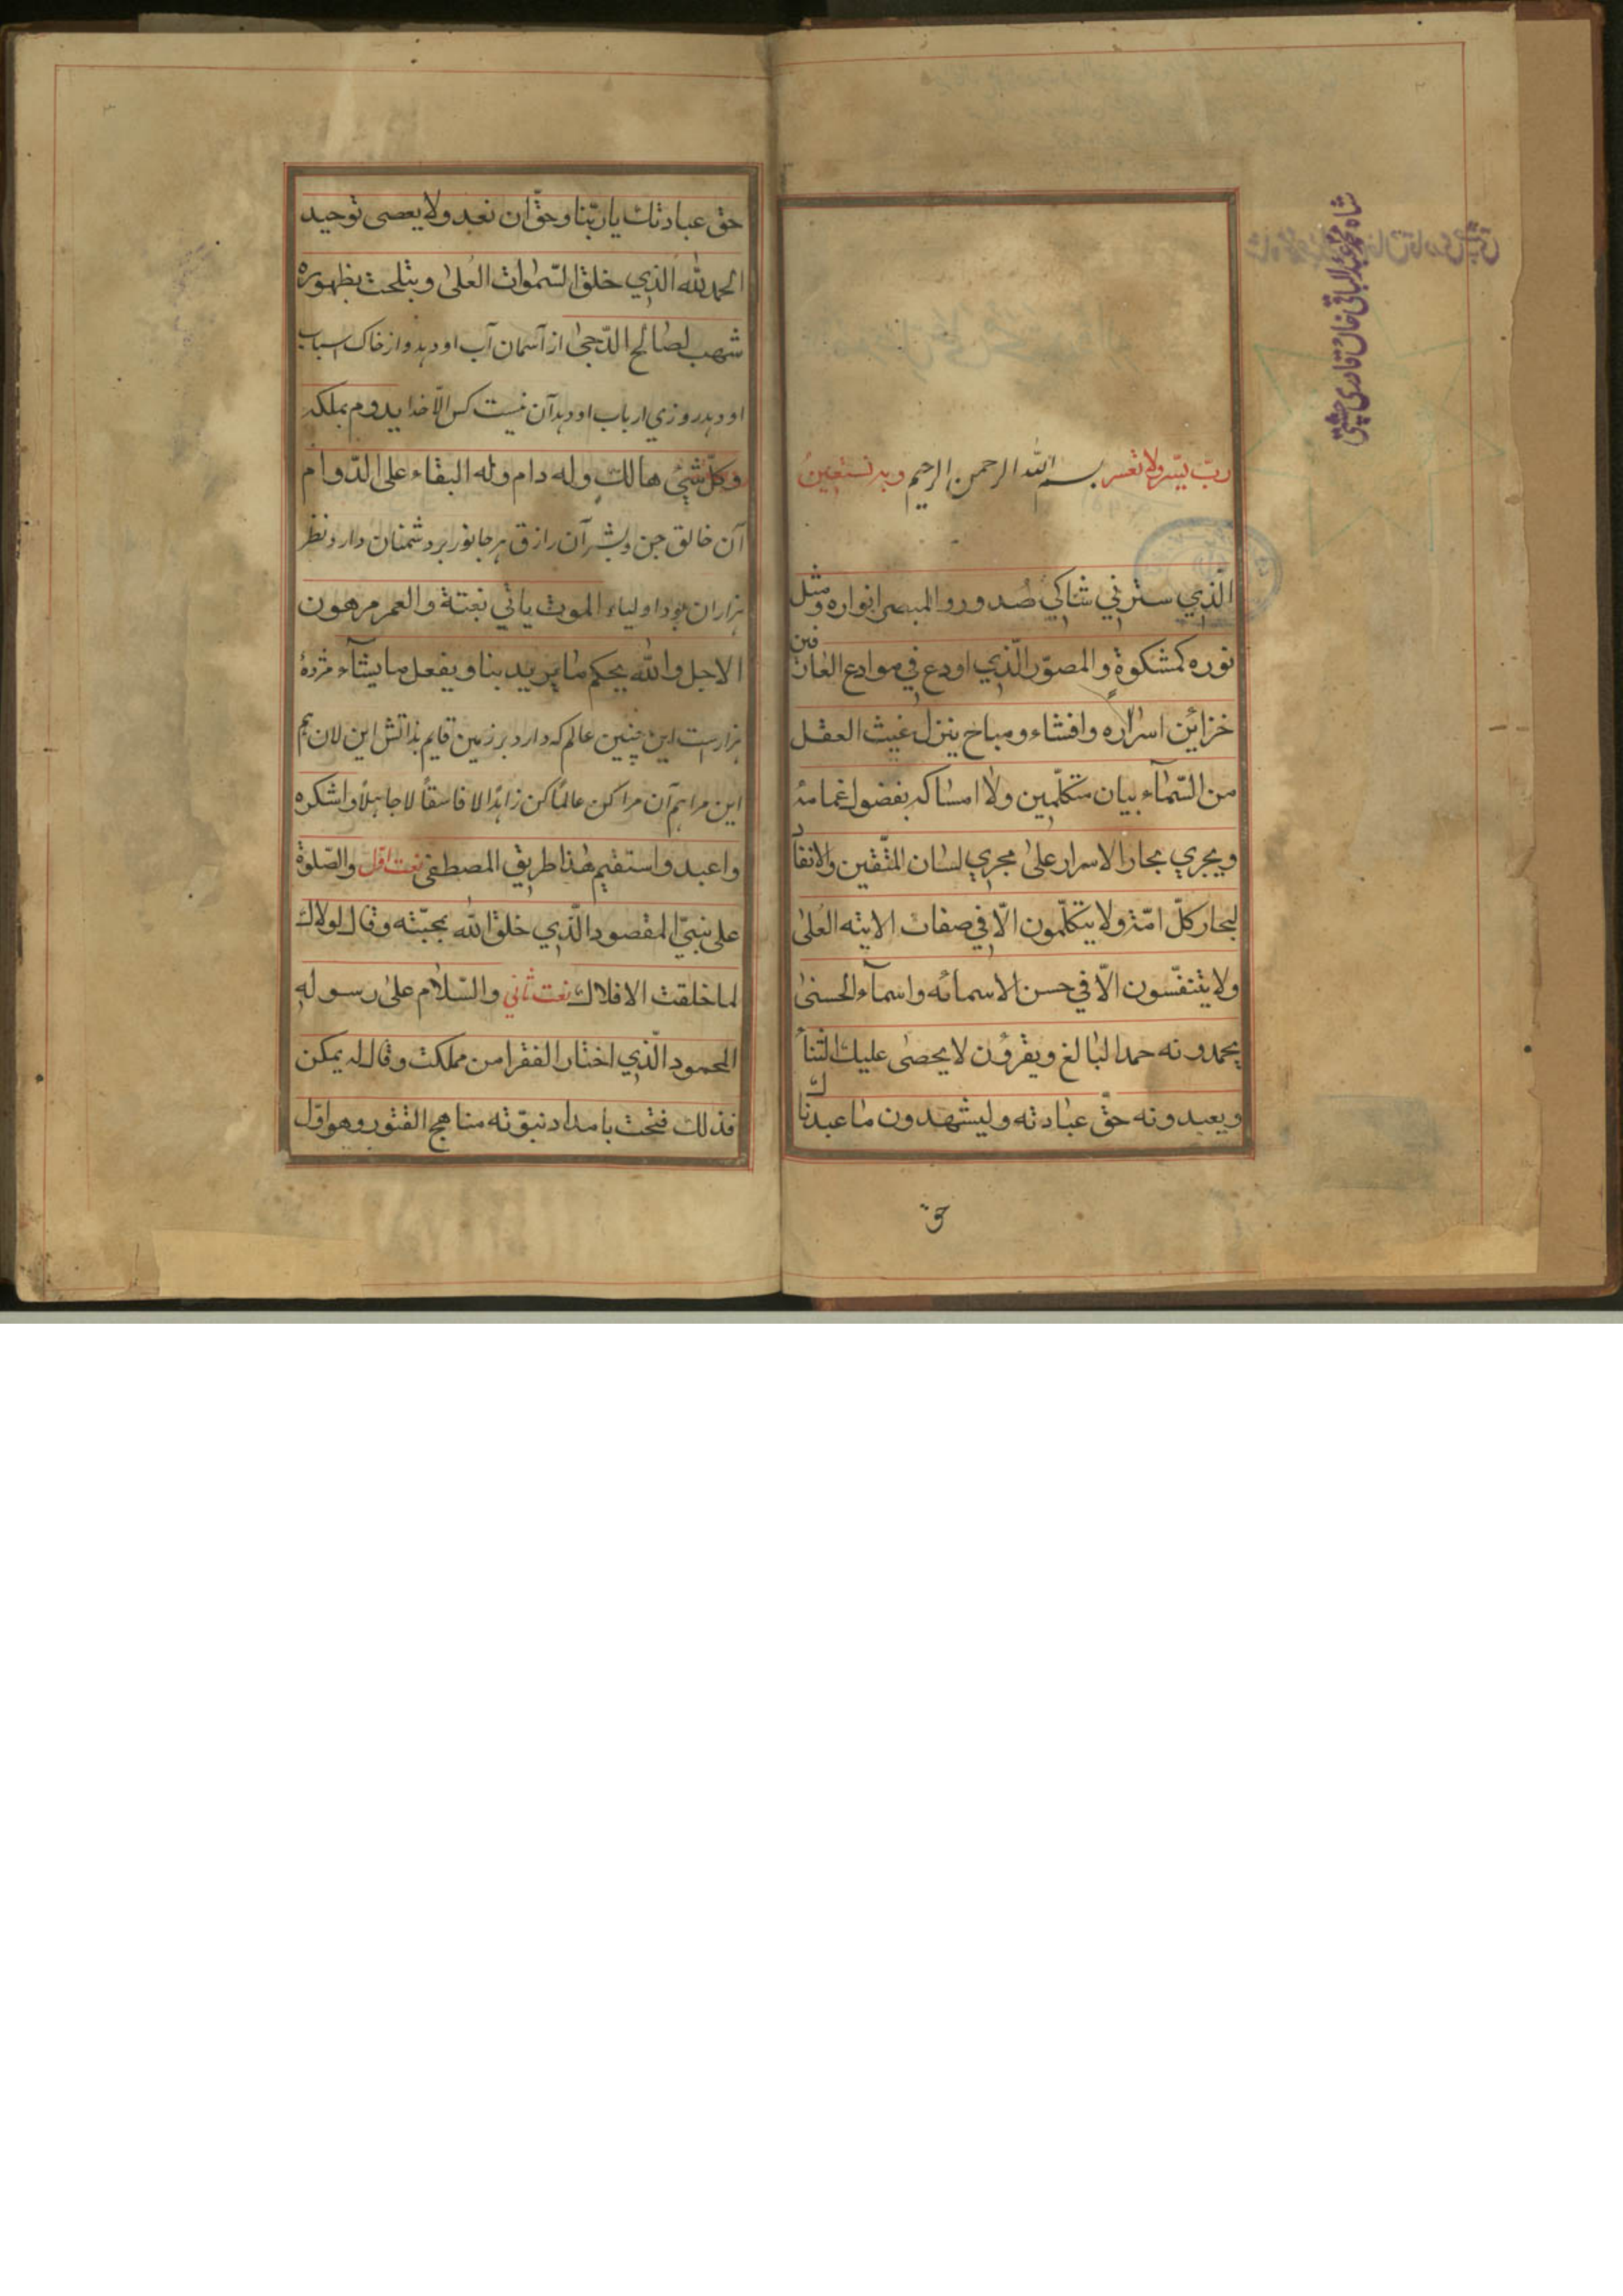 ربّ يسّر ولا تعسر بسم الله الرحمن الرحيم وبه نستعينُ
الّذي ستر في شاكي صُدور و المبصر انواره ومثل
نوره كمشكوة والمصوّر الّذي اودع في موادع العارفين
خزاين اسراره وافشاء ومباح ينزل غيث العقل
من السّمآء بيان متكلّمين ولا امساكه بفضول غمامه
ويجري بحار الاسرار على مجري لسان المتّقين والانفاد
لبحار كلّ امّة ولا يتكلّمون الّا في صفات الايته العُلىٰ
ولا يتنفّسون الّا في حسن الاسمائه واسمآء الحسنىٰ
يحمدونه حمدا لبالغ ويقرؤن لا يحصى عليك الثناء
ويعبدونه حقّ عبادته وليشهدون ما عبدناك
حق
شاه محمد عبد الباقي خان قادري چشتي
حق عبادتك يا ربّنا وحقّ ان نعبد ولا يعصى توحيد
الحمد لله الّذي خلق السّموات العُلىٰ و بظهوره
شهب لصالح الدّجىٰ از آسمان آب او دهد و از خاك اسباب
او دهد روزي ارباب او دهد آن نيست كس الّا خدا يدوم بملكه
وكلّ شيء هالك وله دام وله البقاء على الدّوام
آن خالق جن و بشر آن رازق هر جانور بر دشمنان دارد نظر
هزاران بود اولياء الموت ياتي بغتة والعمر مرهون
الاجل والله يحكم ما يريد بنا ويفعل ما يشآء مژدهٔ
هزارست اين چنين عالم كه دارد بر زمين قايم بذاتش اين لان هم
اين مرا هم آن مرا كن عالمًا كن زاهدًا لا فاسقاً لا جاهلاً واشكره
واعبد واستقيم هٰذا طريق المصطفى نعت اوّل والصّلوة
على نبيّ المقصود الّذي خلق الله بمحبّته وقال لولاك
لما خلقت الافلاك نعت ثاني والسّلام على رسوله
المحمود الّذي اختار الفقر من مملكت وقال له يمكن
فذلك فتحت بامداد نبوّته مناهج الفتور وهو اوّل